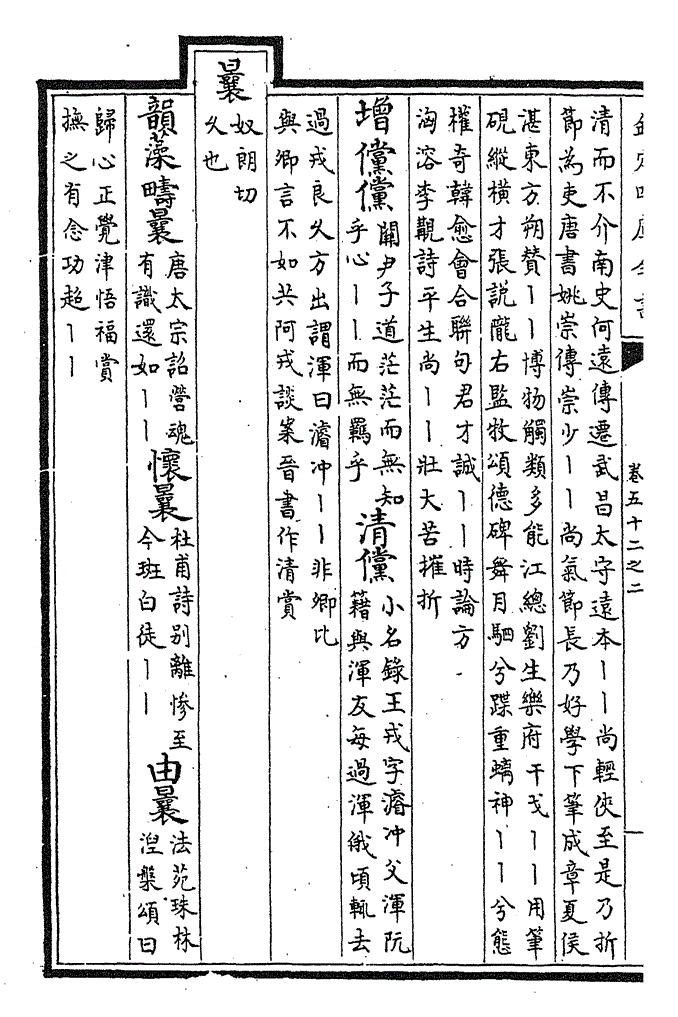 欽定四庫全書
卷五十二之二
清而不介南史何遠傳遷武昌太守遠本丨丨尚輕俠至是乃折
節為吏唐書姚崇傳崇少丨丨尚氣節長乃好學下筆成章夏侯
湛東方朔贊丨丨博物觸類多能江總劉生樂府干戈丨丨用筆
硯縱橫才張説隴右監牧頌德碑舞月駟兮蹀重螭神丨丨兮態
權奇韓愈會合聯句君才誠丨丨時論方
洶溶李觀詩平生尚丨丨壯大苦摧折
增儻儻
關尹子道茫茫而無知
乎心丨丨而無羈乎
清儻
小名錄王戎字濬冲父渾阮
籍與渾友每過渾俄頃輒去
過戎良久方出謂渾曰濬冲丨丨非卿比
與卿言不如共阿戎談案晉書作清賞
曩
奴朗切
久也
韻藻疇曩
唐太宗詔營魂
有識還如丨丨
懷曩
杜甫詩別離慘至
今班白徒丨丨
由曩
法苑珠林
湼槃頌曰
歸心正覺津悟福賞
撫之有念功超丨丨